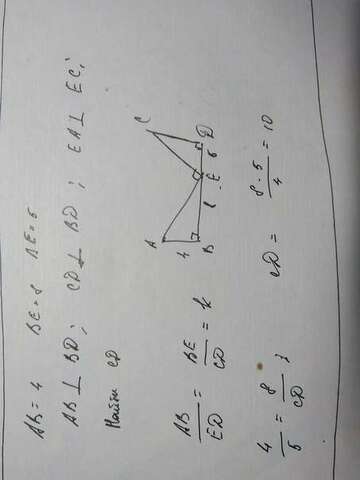 AB = 4 BE = 8 DE = 5
AB ⊥ BD; CD ⊥ BD; EA ⊥ EC;
Найти CD
A
C
4
B
8
E
D
AB/ED = BE/CD = k
4/5 = 8/CD ;
CD = 8·5/4 = 10